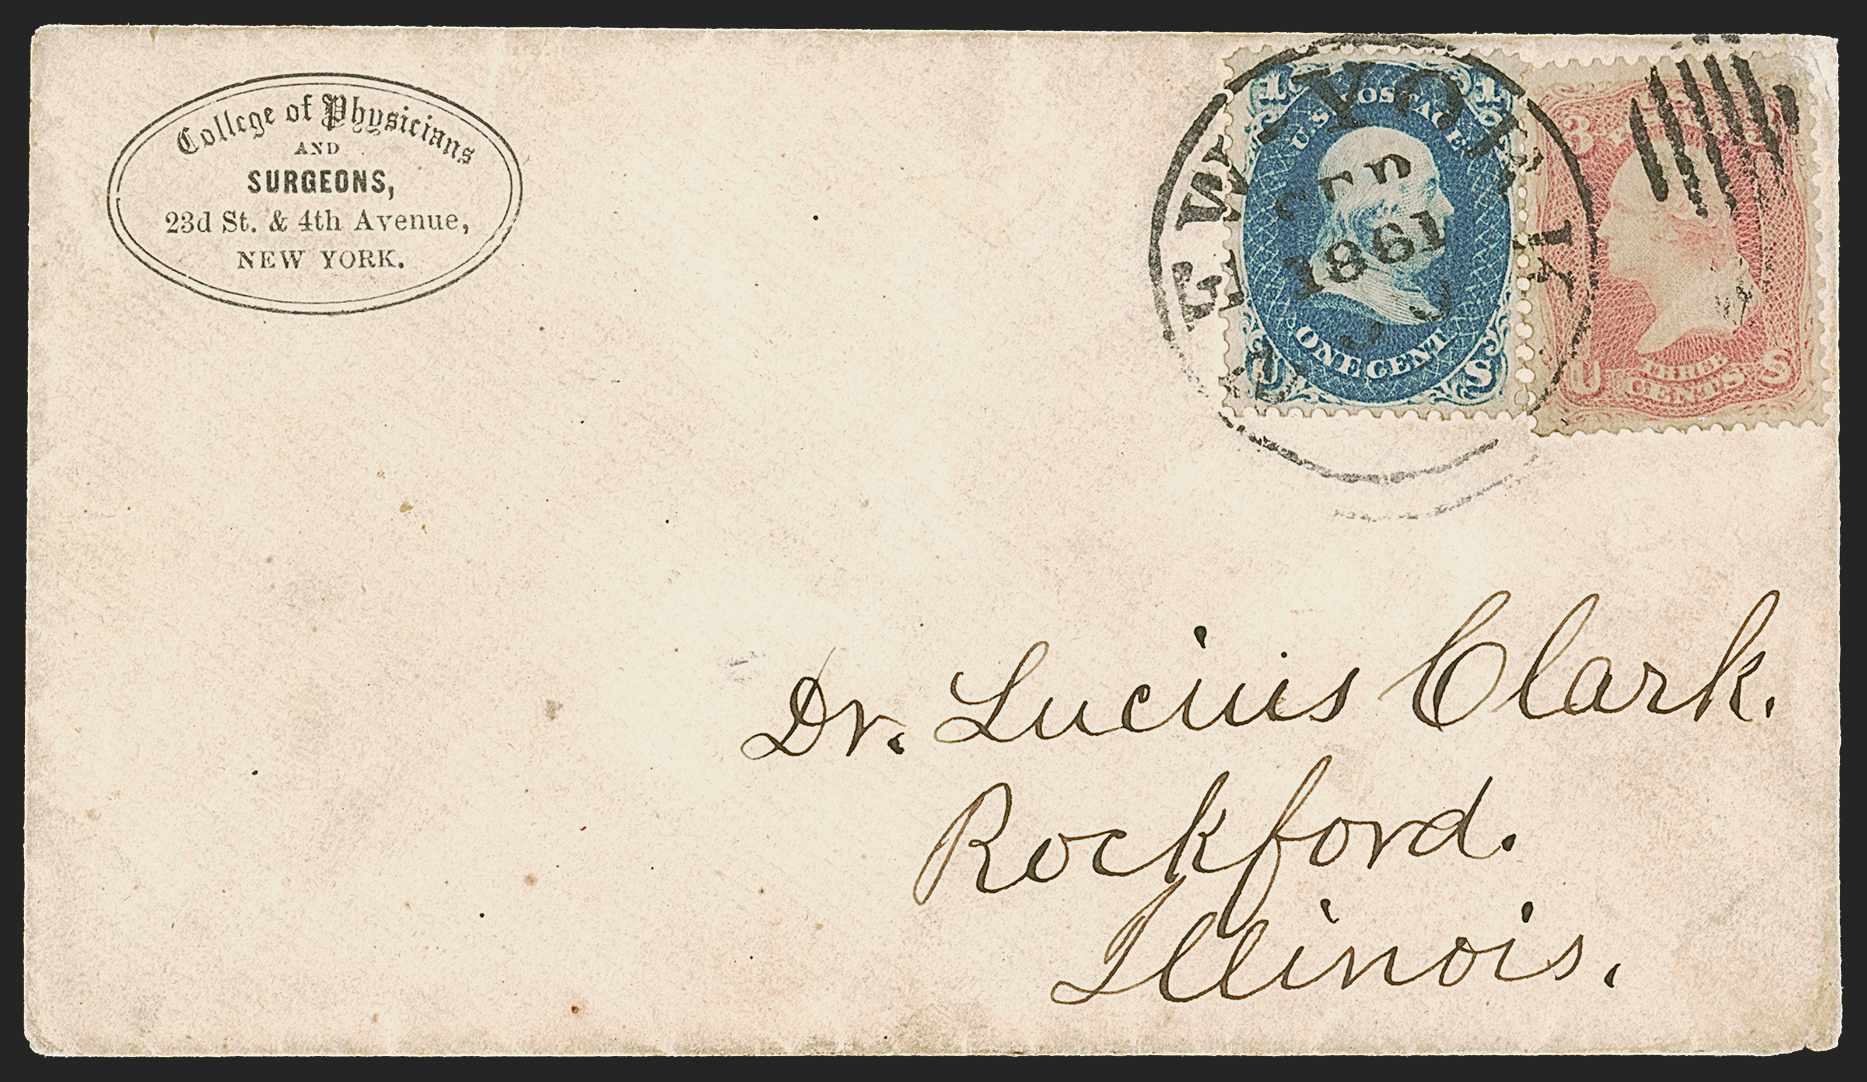 College of Physicians
AND
SURGEONS,
23d St. & 4th Avenue,
NEW YORK.
NEW-YORK
SEP
1861
1 1
U.S. POSTAGE
ONE CENT
U S
3
THREE
CENTS
U S
Dr. Lucius Clark.
Rockford.
Illinois.